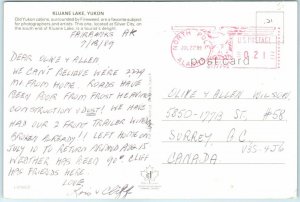 KLUANE LAKE, YUKON
Old Yukon cabins, surrounded by Fireweed, are a favorite subject
for photographers and artists. This one, located at Silver City, on
the south end of Kluane Lake, is a tourist's delight.
FAIRBANKS AK
7/18/89
DEAR OLIVE & ALLEN
WE CAN'T BELIEVE WE'RE
MI FROM HOME. ROADS HAVE
BEEN POOR FROM FROST HEAVING
CONSTRUCTION & DUST! WE HAVE
HAD OUR 2 FRONT TRAILER WINDOWS
BROKEN ALREADY! I LEFT HOME ON
JULY 10 TO RETURN AROUND AUG 15
WEATHER HAS BEEN 90° CLIFF
HAS FRIENDS HERE.
LOVE,
& Cliff
NORTH POLE
ALASKA
post card
OLIVE & ALLEN WILSON
5850-177B ST #58
SURREY B.C.
V3S-4J6
CANADA